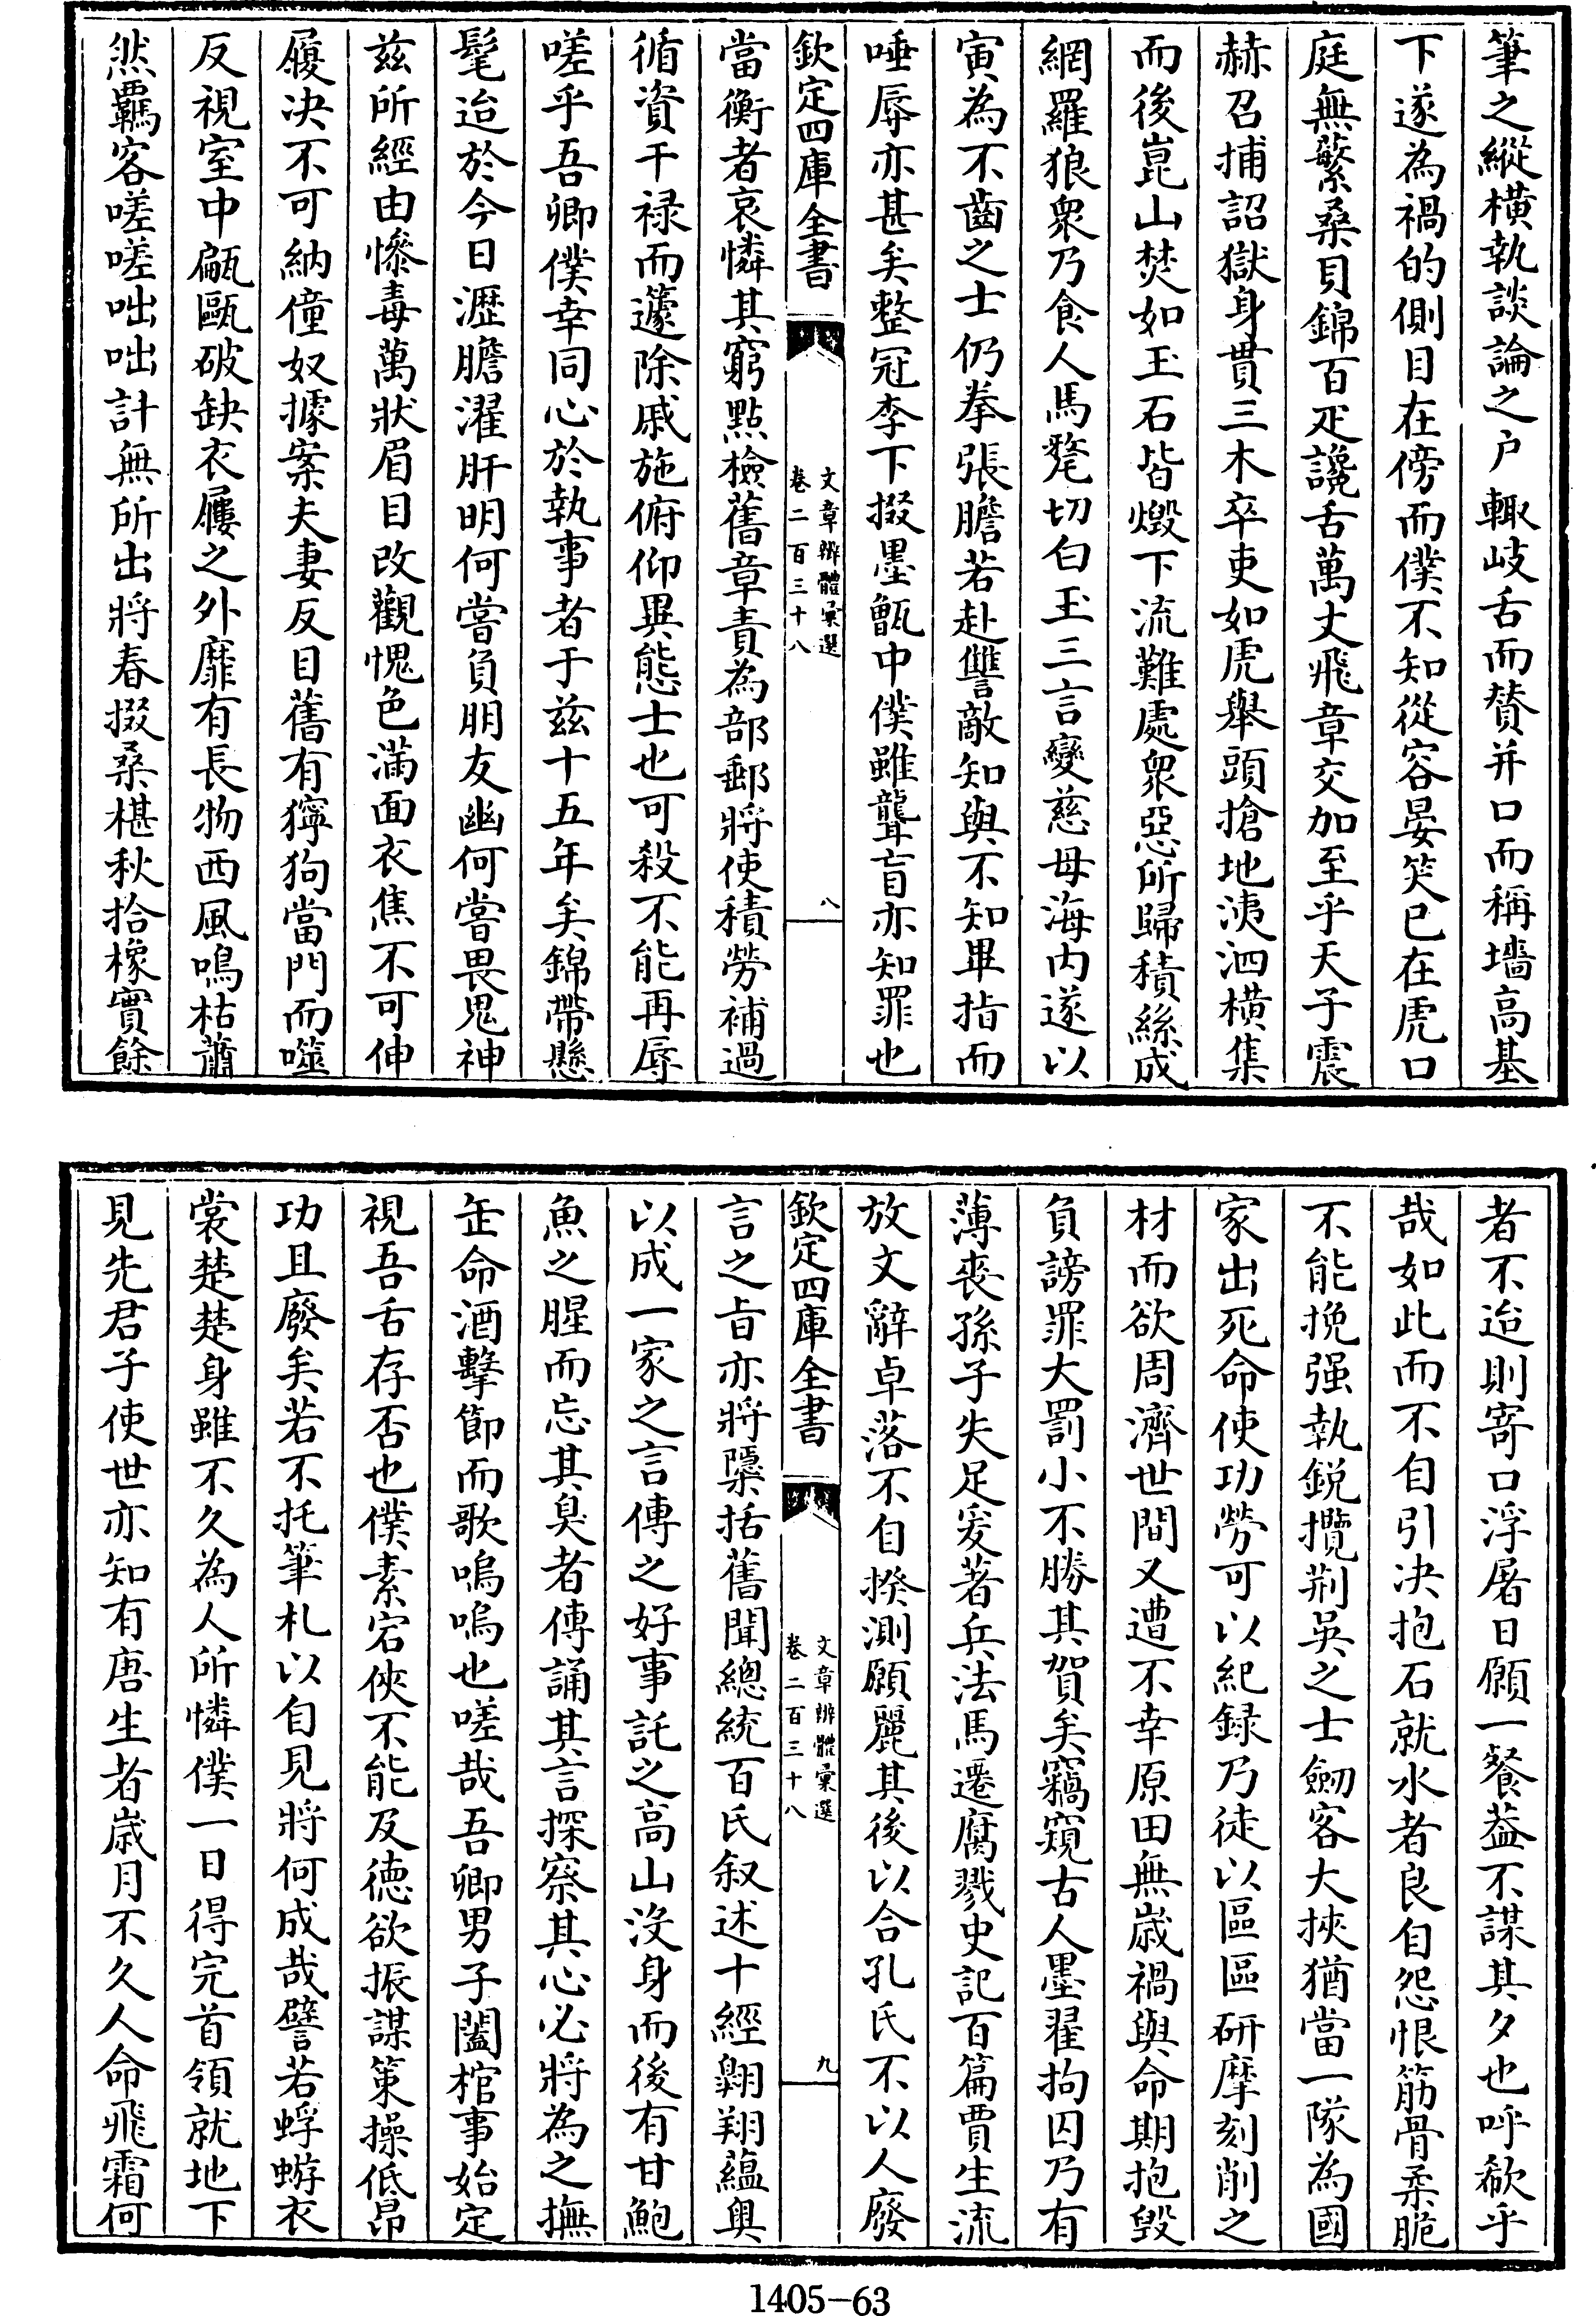 筆之縱横執談論之户輙岐舌而賛并口而稱墻高基
下遂為禍的側目在傍而僕不知從容晏笑已在虎口
庭無蘩桑貝錦百疋讒舌萬丈飛章交加至乎天子震
赫召捕詔獄身貫三木卒吏如虎舉頭搶地洟泗横集
而後崑山焚如玉石皆燬下流難處衆惡所歸積絲成
網羅狼衆乃食人馬氂切白玉三言變慈母海内遂以
寅為不齒之士仍拳張膽若赴讐敵知與不知畢指而
唾辱亦甚矣整冠李下掇墨甑中僕雖聾盲亦知罪也
欽定四庫全書
文章辨體彙選
卷二百三十八
八
當衡者哀憐其窮點檢舊章責為部郵將使積勞補過
循資干禄而籧除戚施俯仰異態士也可殺不能再辱
嗟乎吾卿僕幸同心於執事者于兹十五年矣錦帶懸
髦迨於今日瀝膽濯肝明何嘗負朋友幽何嘗畏鬼神
兹所經由慘毒萬狀眉目改觀愧色滿面衣焦不可伸
履决不可納僮奴據案夫妻反目舊有獰狗當門而噬
反視室中甂甌破缺衣屨之外靡有長物西風鳴枯蕭
然羈客嗟嗟咄咄計無所出將春掇桑椹秋拾橡實餘
者不迨則寄口浮屠日願一餐葢不謀其夕也呼欷乎
哉如此而不自引决抱石就水者良自怨恨筋骨柔脆
不能挽强執鋭攬荆吳之士劒客大挾猶當一隊為國
家出死命使功勞可以紀録乃徒以區區研摩刻削之
材而欲周濟世間又遭不幸原田無歲禍與命期抱毁
負謗罪大罰小不勝其賀矣竊窺古人墨翟拘囚乃有
薄喪孫子失足爰著兵法馬遷腐戮史記百篇賈生流
放文辭卓落不自揆測願麗其後以合孔氏不以人廢
欽定四庫全書
文章辨體彙選
卷二百三十八
九
言之㫖亦將隱栝舊聞總統百氏叙述十經翺翔藴奥
以成一家之言傳之好事託之高山没身而後有甘鮑
魚之腥而忘其臭者傳誦其言探察其心必將為之撫
缶命酒擊節而歌嗚嗚也嗟哉吾卿男子闔棺事始定
視吾舌存否也僕素宕俠不能及德欲振謀策操低昂
功且廢矣若不托筆札以自見將何成哉譬若蜉蝣衣
裳楚楚身雖不久為人所憐僕一日得完首領就地下
見先君子使世亦知有唐生者歲月不久人命飛霜何
1405-63